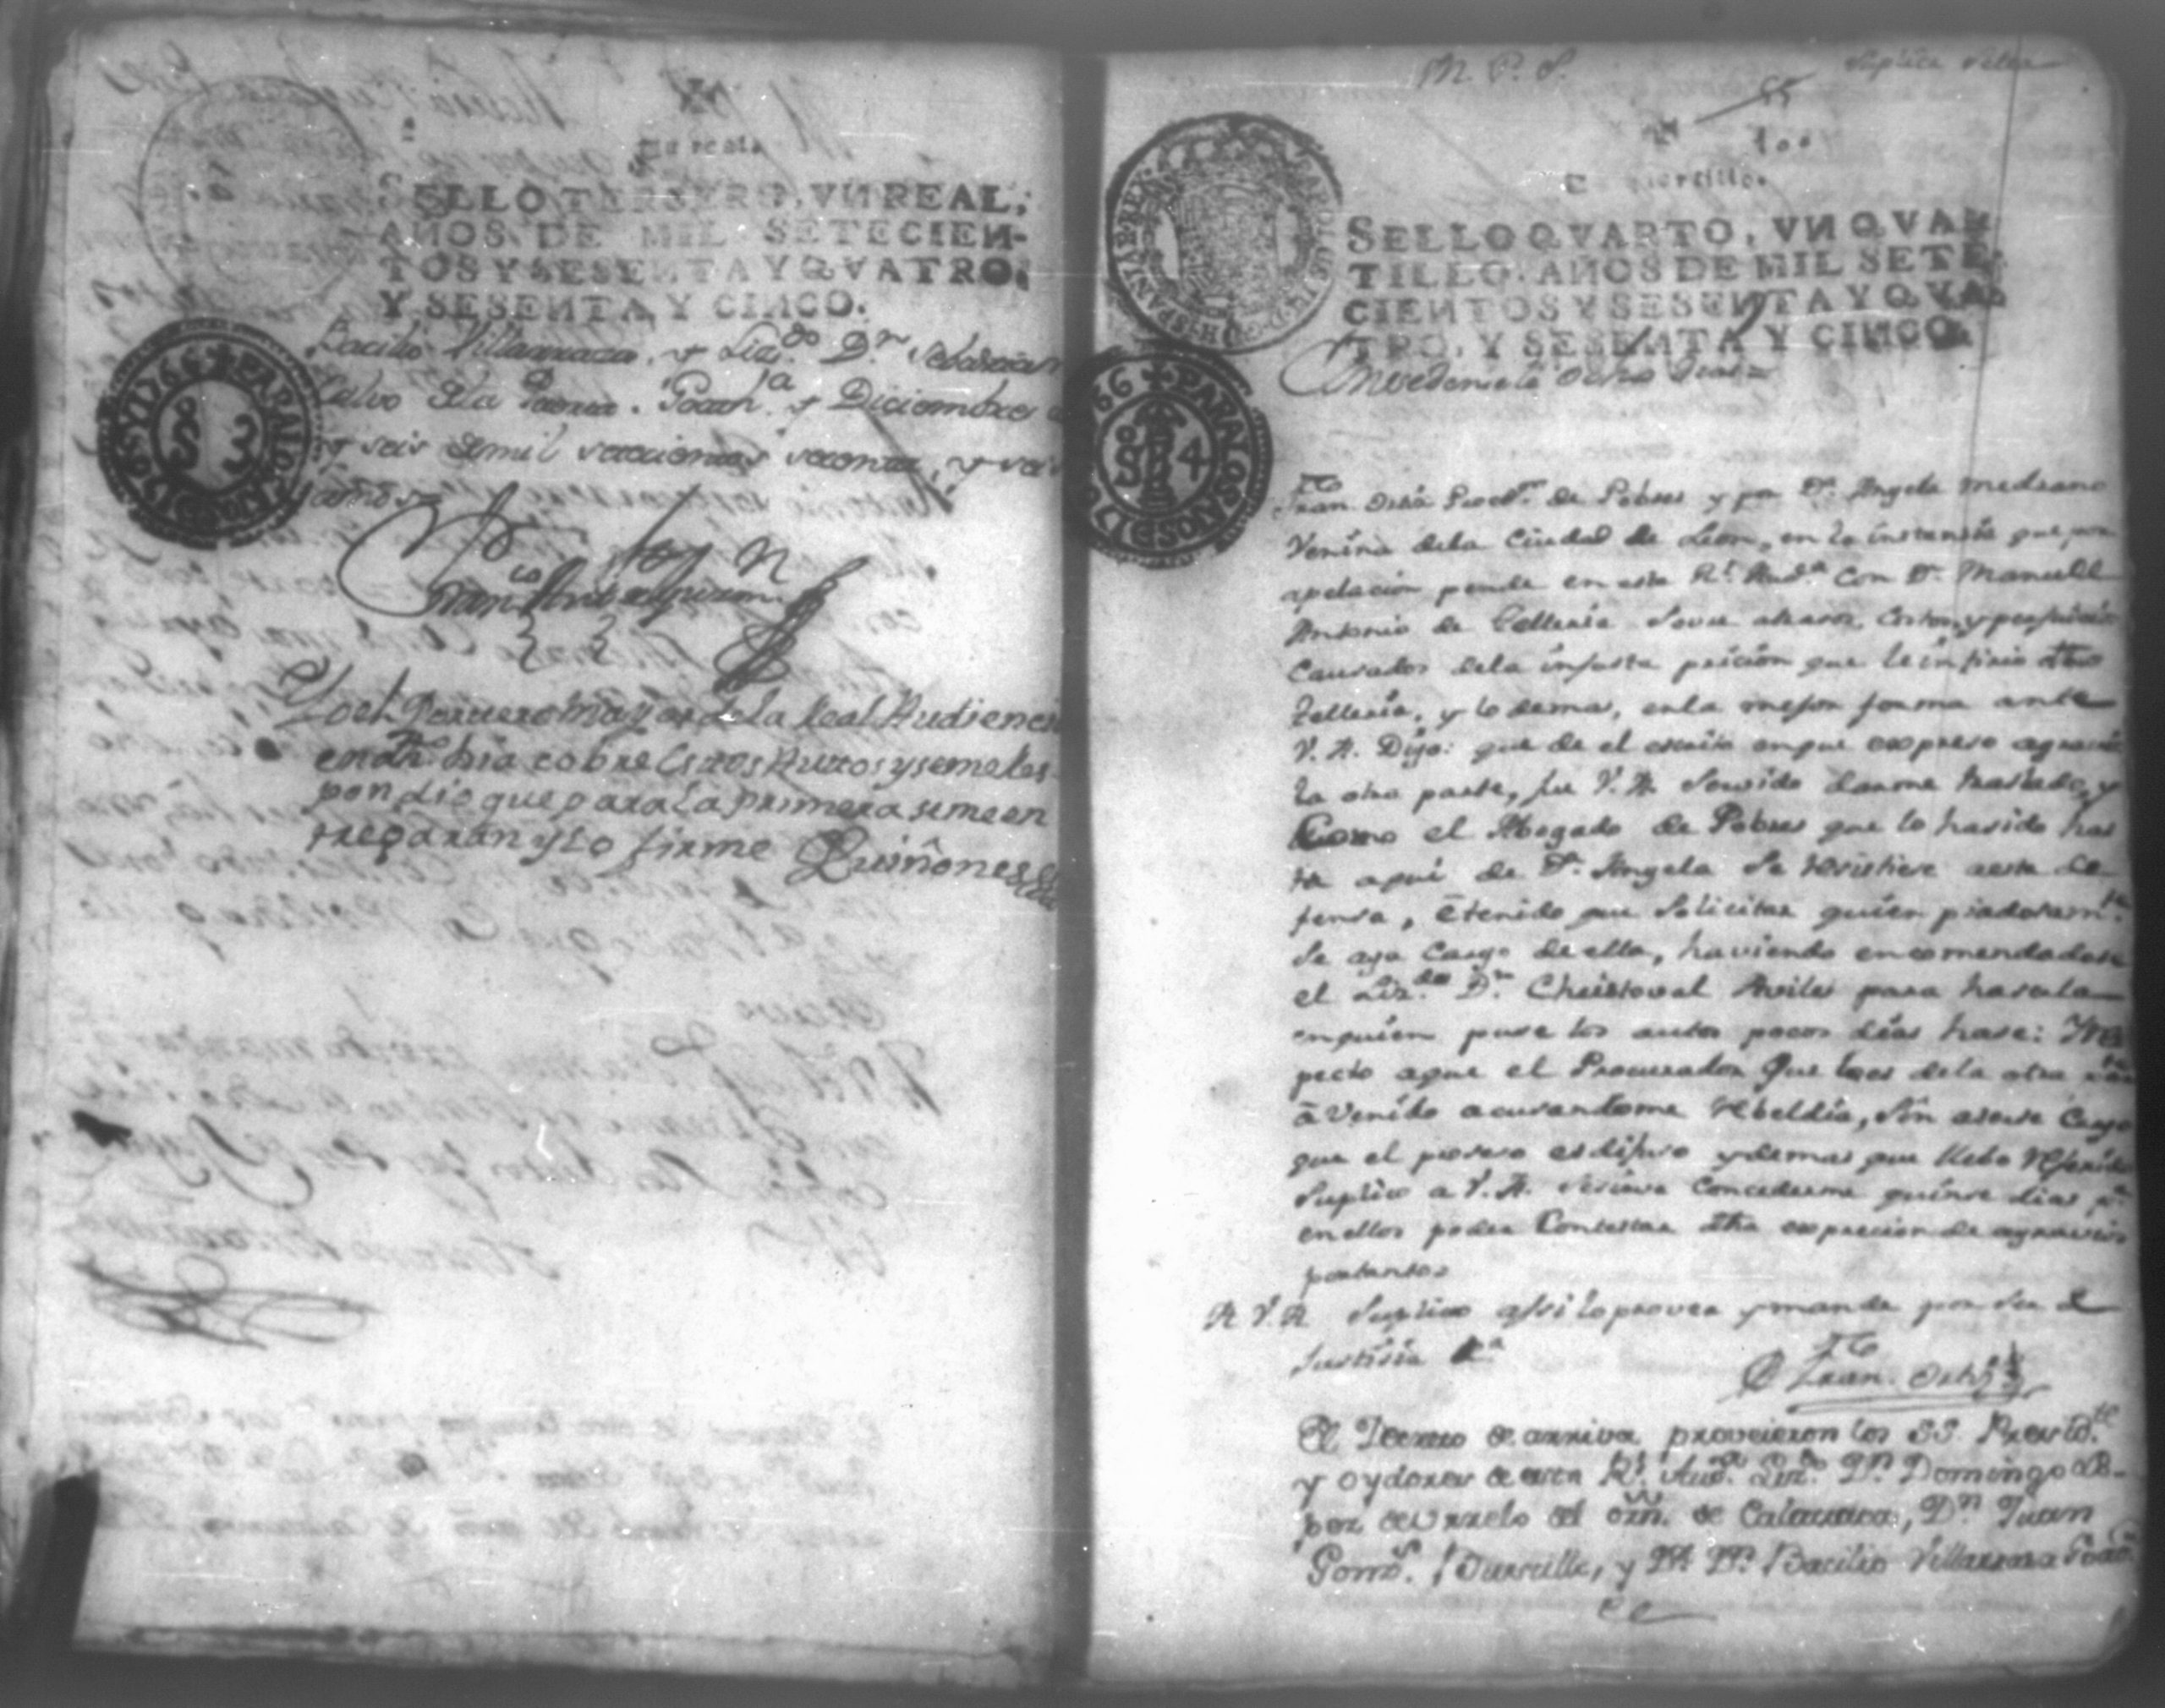 Vn real.
SELLO TERSERO, VN REAL,
AÑOS DE MIL SETECIEN-
TOS Y SESENTA Y QVATRO,
Y SESENTA Y CINCO.
Bacilio Villarraza, y Liz.do D.n Sebastian
Calvo dela Goath.a y Diciembre
y seis demil setecientos secenta, y
años
Yo el Portero Mayor de la Real Audiencia
en dho. dia cobre estos Autos y seme les
pondio que para la primera seme en
tregaran y lo firme Quiñones
PARA LOS AÑOS DE 1765 Y 1766
S 3
M. P. S.
Suplica
100
Vn quartillo.
SELLO QVARTO, VN QVAR
TILLO. AÑOS DE MIL SETE
CIENTOS Y SESENTA Y QVA
TRO, Y SESENTA Y CINCO.
Concedensele ocho dias
PARA LOS AÑOS DE 1765 Y 1766
S 4
Fran.co Ortiz Proc.or de Pobres y por D.a Angela Medrano
Vesina dela Ciudad de Leon, en la instansia que por
apelacion pende en esta R.l Aud.a con D.n Manuel
Antonio de Telleria Sovre atrasos, Costos, y perjuicios
Causados dela injusta pricion que le infirio dho
Telleria, y lo demas, enla mejor forma ante
V. A. Digo: que de el escrito enque expreso agravios
la otra parte, fue V. A. Servido darme traslado, y
Como el Abogado de Pobres que lo hasido has
ta aqui de D.a Angela Se resistiese aesta de
fensa, é tenido que Solicitar quien piadosam.te
Se aga Cargo de ella, haviendo encomendadose
el Liz.do D.n Christoval Aviles para haserla
enquien puse los autos pocos dias hase: Yres
pecto aque el Procurador Que lo es dela otra
à Venido acusandome Rebeldia, Sin aserse Cargo
que el proseso esdifuso ydemas que llebo Referido
Suplico a V. A. Sesirva Concederme quinse dias p.a
enellos poder Contestar dha exprecion de agravios
portanto
A V. A. Suplico assi lo provea y mande por ser de
Justisia &.a
Fran.co Ortiz
El Decreto de arriva proveieron los SS. Presid.te
y oydores de esta R.l Aud.a Liz.do D.n Domingo Lo-
pez de Urrelo del orñ. de Calatrava, D.n Juan
Gonz.s Bustillo, y D.n Bacilio Villarraza Goath.a